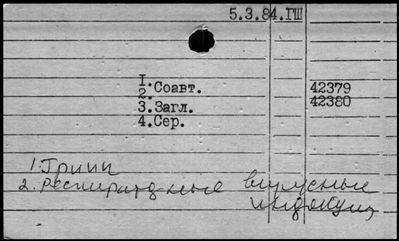 5.3.84.ГШ
1.
2. Соавт.
42379
3. Загл.
42380
4. Сер.
1. Грипп
2. Респираторные вирусные
инфекции